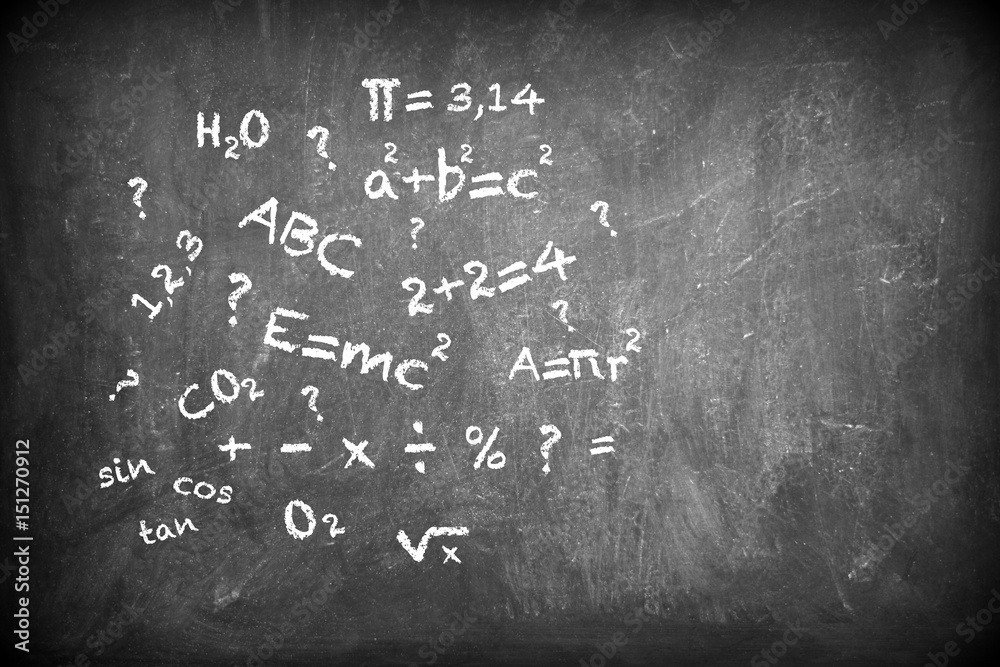 π = 3,14
H₂O
?
a²+b²=c²
?
ABC
?
?
1,2,3
2+2=4
?
?
E=mc²
A=πr²
?
CO₂
?
+ - x ÷ % ? =
sin
cos
tan
O₂
√x
Adobe Stock | 151270912
Adobe Stock